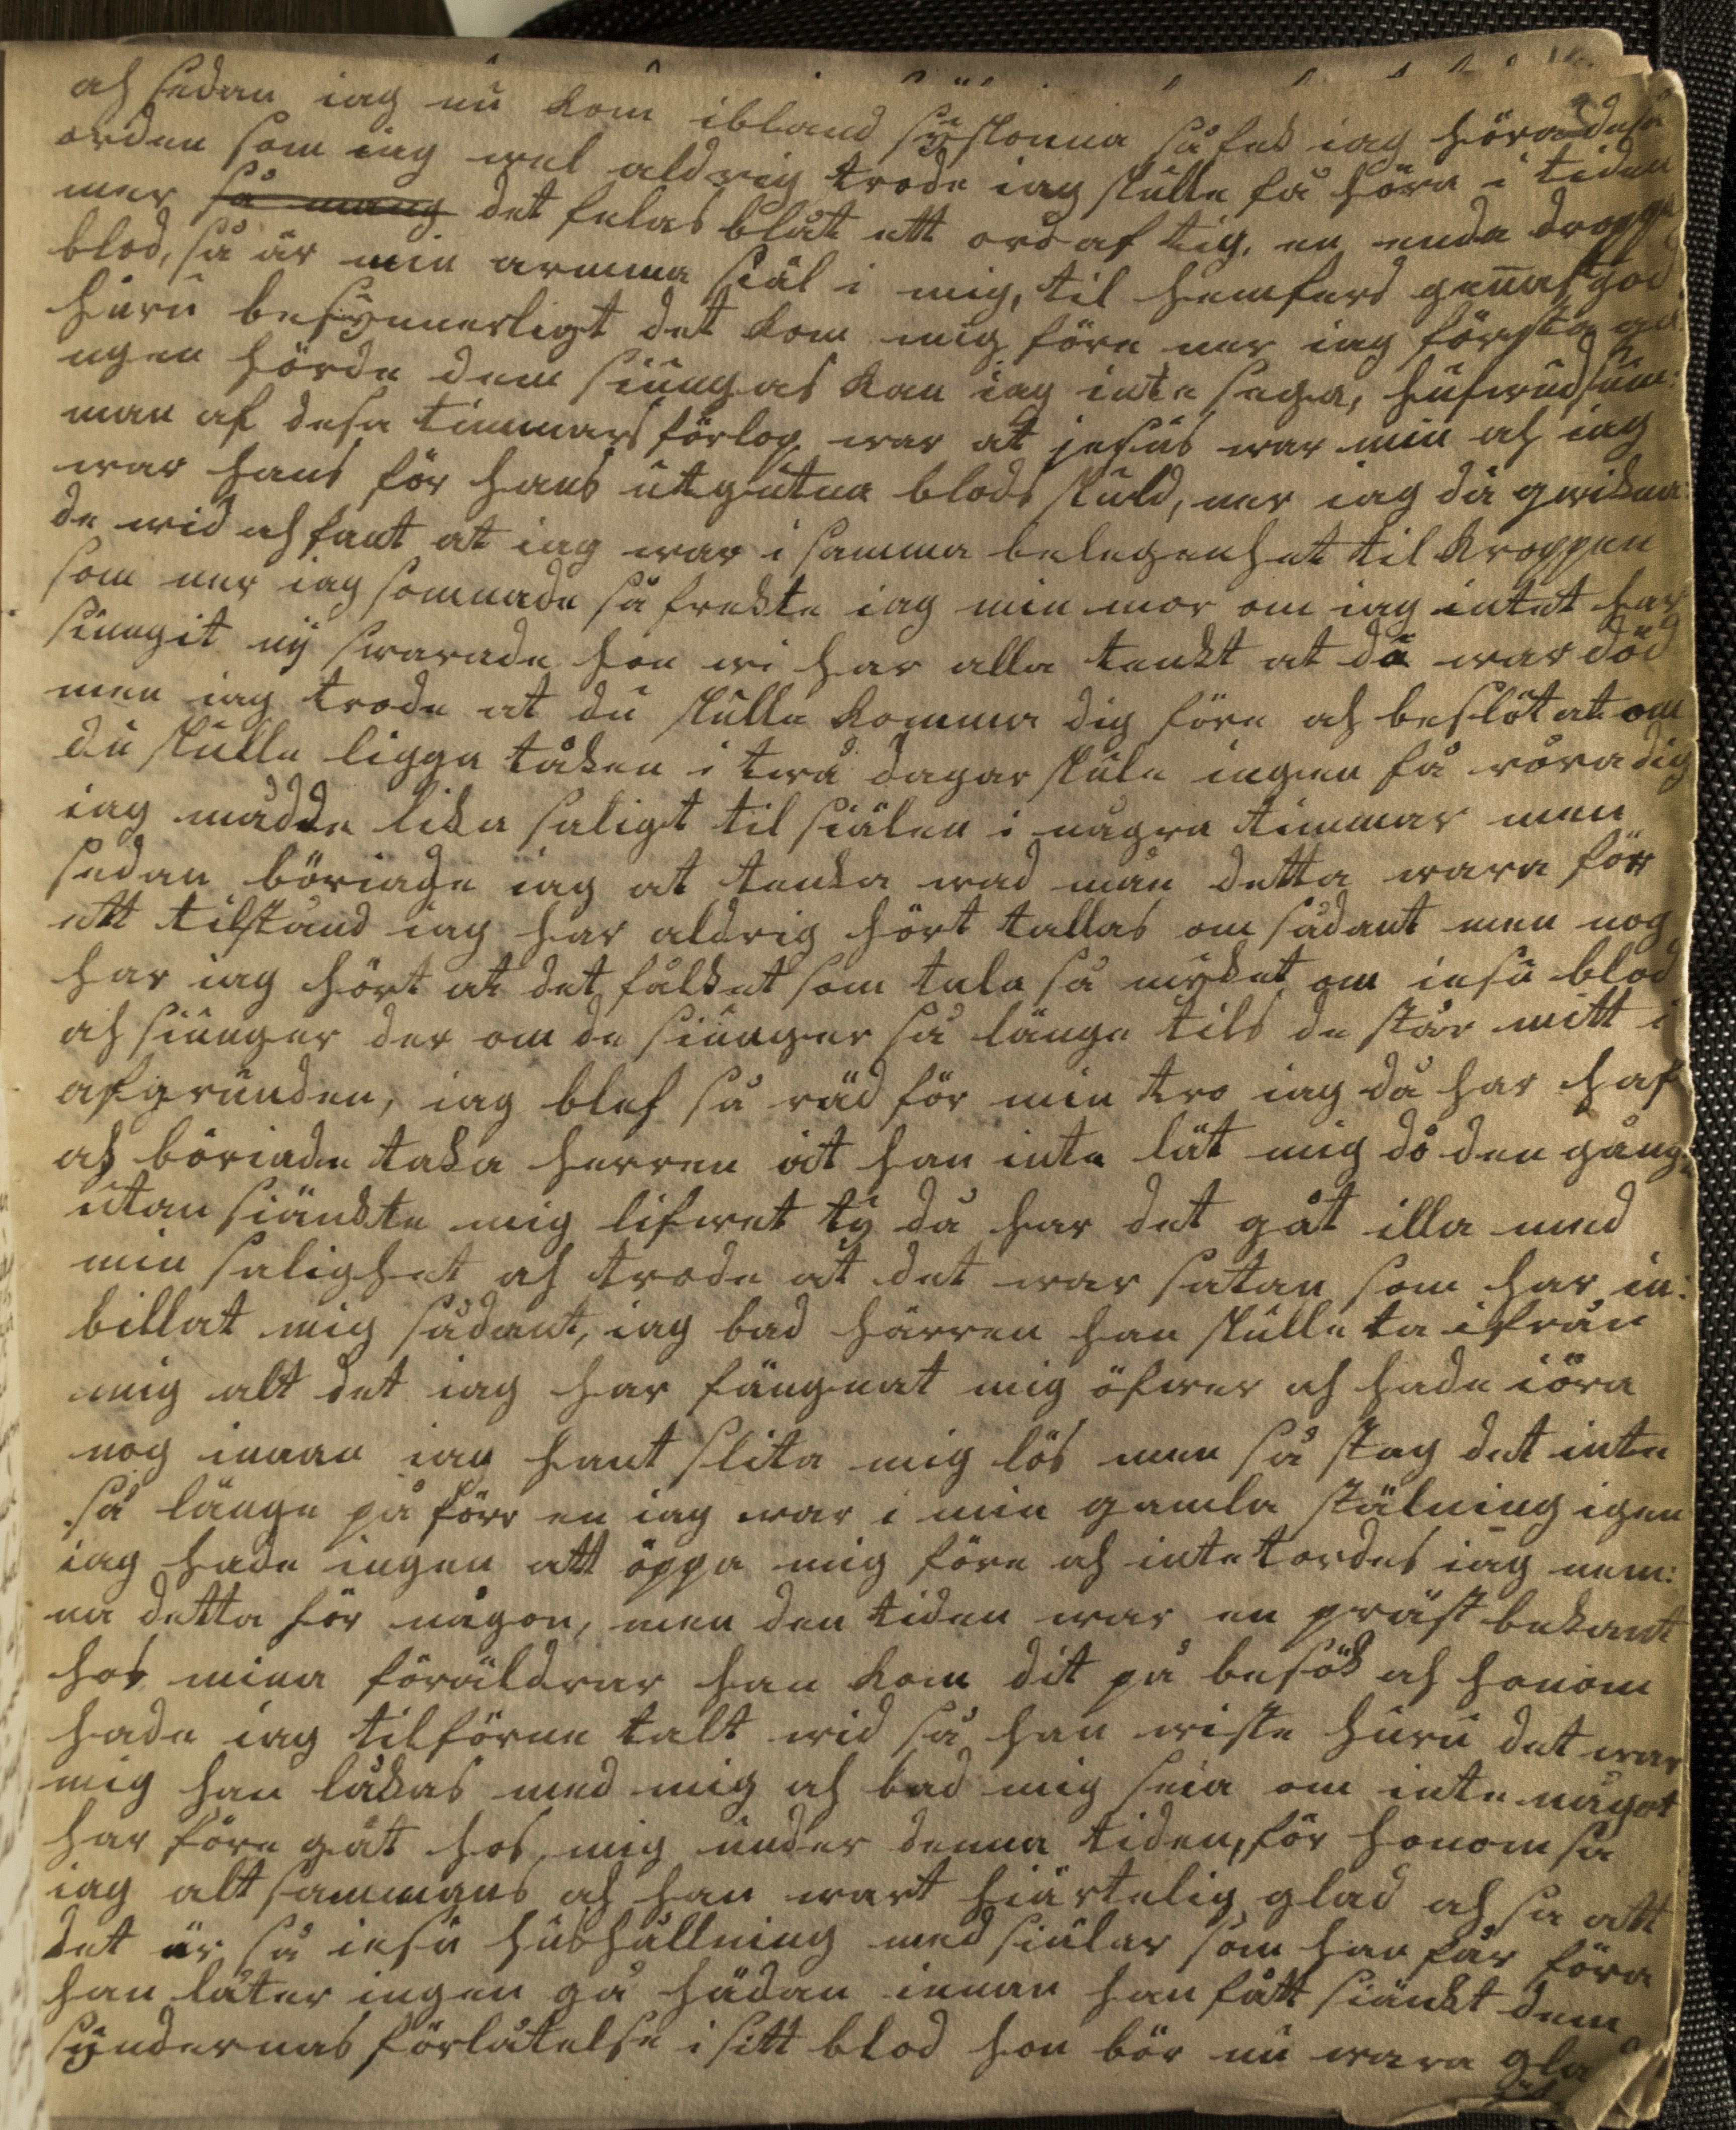 ah sedan iag nu kom ibland syskonna så fek iag höra desa
orden som iag wel aldrig trode iag skulle få höra i tiden
mer så mang det felas blåt ett ord af tig, en enda droppe
blod, så är min armma siäl i mig, til hemferd genast god.
huru besynnerligt det kom mig före ner iag första gå:
ngen hörde dem siungas kan iag inte sega, hufwudsum:
man af desa timmars förlop war at jesus war min ah iag
war hans för hans utgutna blods skuld, ner iag då qwikna
de wid ah fant at iag war i samma belegenhet til kroppen
som ner iag somnade så frekte iag min mor om iag intet har
siungit nij swarade hon wi har alla tenkt at du war död
men iag trode at du skulle komma dig före ah beslöt at om
du skulle ligga tåken i twå dagar skule ingen få röra dig
iag mådde lika saligt til siälen i några timmar men
sedan böriade iag at tenka wad mån detta wara för
ett tilstånd iag har aldrig hört tallas om sådant men nog
har iag hört at det fålket som tala så myket om iesu blod
ah siunger der om de siunger så länge tils de står mitt i
afgrunden, iag blef så räd för min tro iag då har haf
ah böriade taka herren at han inte lät mig dö den gång
utan siänkte mig lifwet ty då har det gåt illa med
min salighet ah trode at det war satan som har in:
billat mig sådant, iag bad härren han skulle ta ifrån
mig alt det iag har fängnat mig öfwer ah hade iöra
nog innan iag hant slita mig lös men så stog det inte
så länge på förr en iag war i min gamla stälning igen
iag hade ingen att öppa mig före ah inte tordes iag nem:
na detta för någon, men den tiden war en präst bekant
hos mina föräldrar han kom dit på besök ah honom
hade iag tilförne talt wid så han wiste huru det war
mig han låkas med mig ah bad mig seia om inte något
har före gåt hos mig under denna tiden, för honom sa
iag alt sammans ah han wart hiärtelig glad ah sa att
det är så iesu hushållning med siälar som han får föra
han låter ingen gå hädan innan han fått siänkt dem
syndernas förlåtelse i sitt blod hon bör nu wara gla